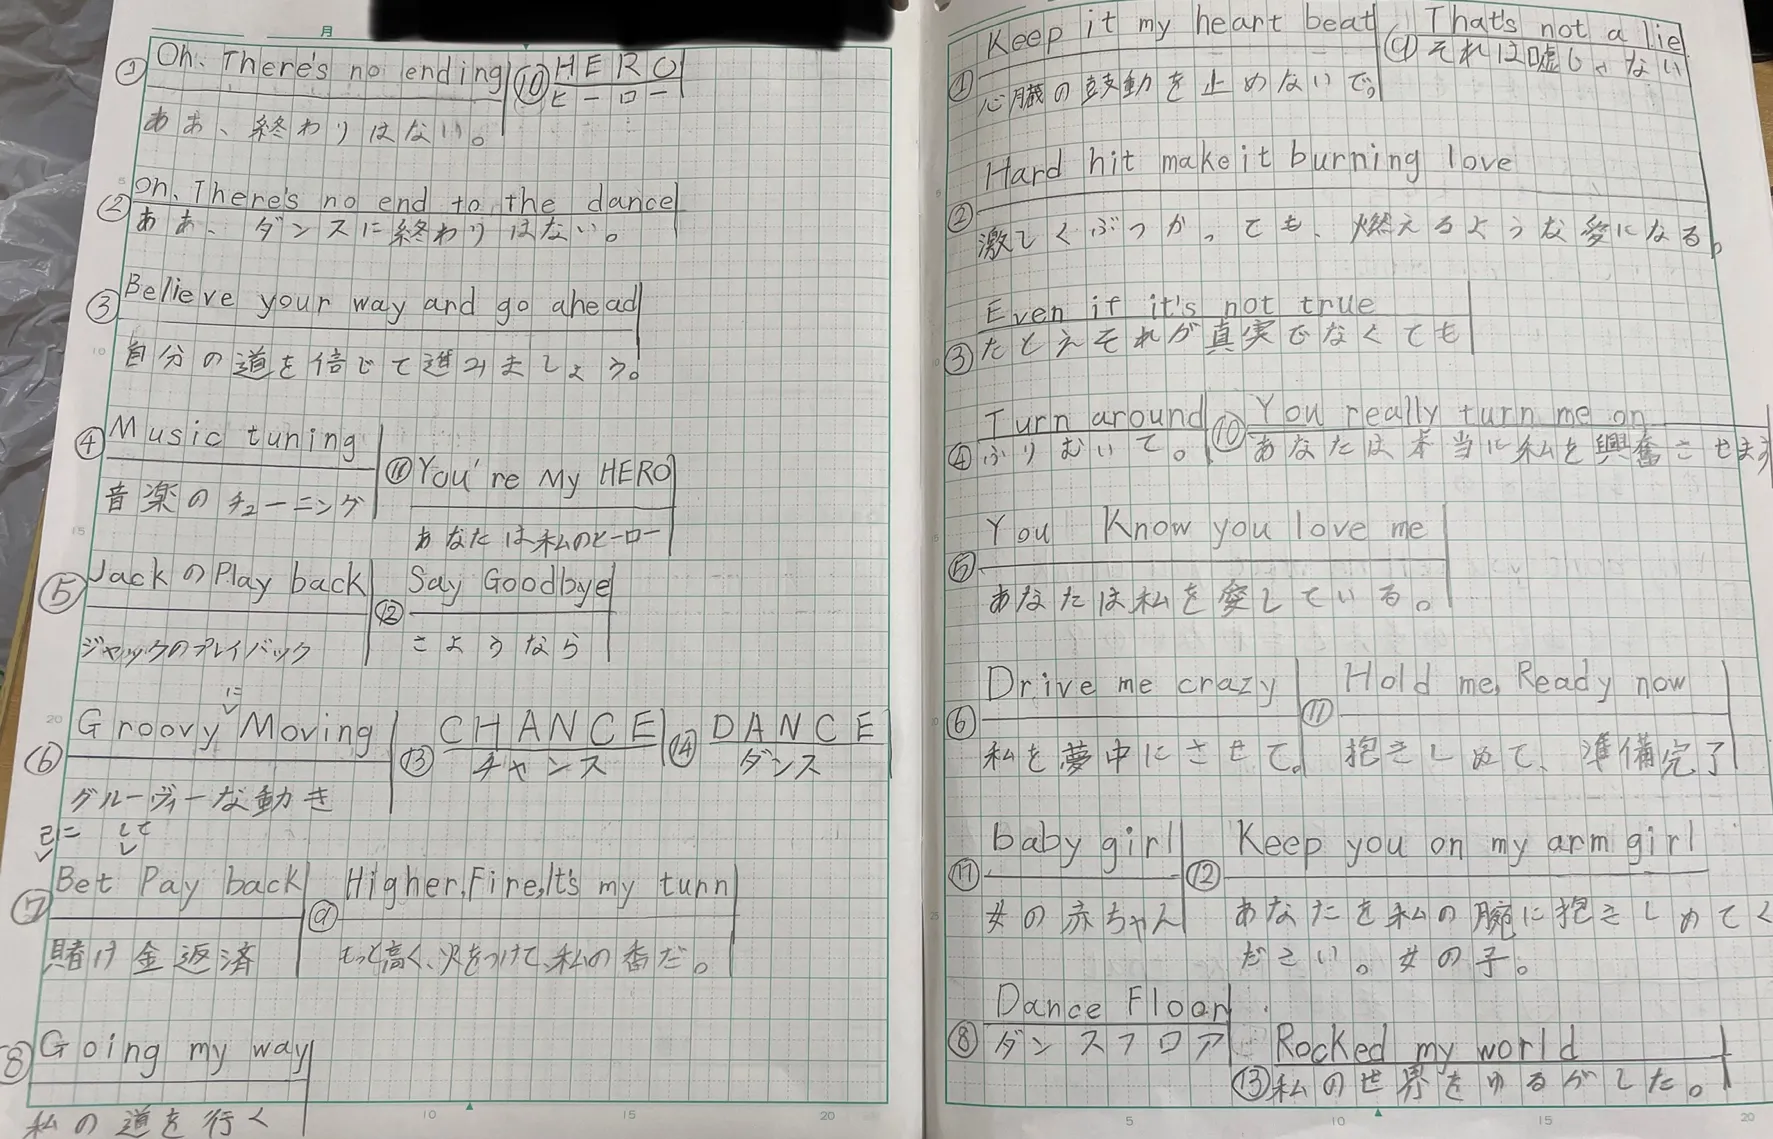 月
① Oh、There's no ending
ああ、終わりはない。
⑩ HERO
ヒーロー
② Oh、There's no end to the dance
ああ、ダンスに終わりはない。
③ Believe your way and go ahead
自分の道を信じて進みましょう。
④ Music tuning
音楽のチューニング
⑪ You're My HERO
あなたは私のヒーロー
⑤ JackのPlay back
ジャックのプレイバック
⑫ Say Goodbye
さようなら
に
⑥ Groovy Moving
グルーヴィーな動き
⑬ CHANCE
チャンス
⑭ DANCE
ダンス
己に して
⑦ Bet Pay back
賭け金返済
⑨ Higher,Fire,It's my turn
もっと高く、火をつけて、私の番だ。
⑧ Going my way
私の道を行く
5
10
15
20
10
15
20
① Keep it my heart beat
心臓の鼓動を止めないで。
⑨ That's not a lie
それは嘘じゃない
② Hard hit make it burning love
激しくぶつかっても、燃えるような愛になる。
③ Even if it's not true
たとえそれが真実でなくても
④ Turn around
ふりむいて。
⑩ You really turn me on
あなたは本当に私を興奮させます
⑤ You Know you love me
あなたは私を愛している。
⑥ Drive me crazy
私を夢中にさせて。
⑪ Hold me, Ready now
抱きしめて、準備完了
⑦ baby girl
女の赤ちゃん
⑫ Keep you on my arm girl
あなたを私の腕に抱きしめてく
ださい。女の子。
⑧ Dance Floor
ダンスフロア
⑬ Rocked my world
私の世界をゆるがした。
5
10
15
20